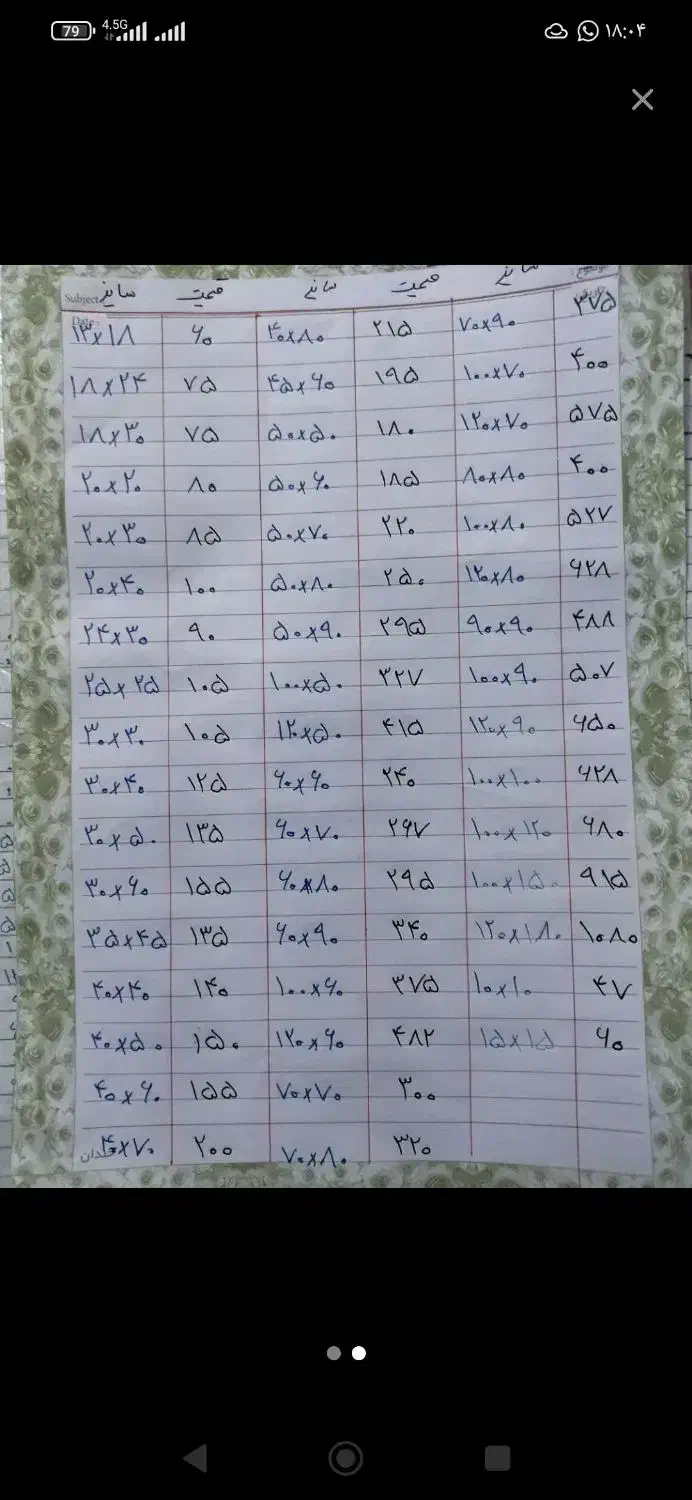 79 4.5G ۱۸:۰۴
Subject: سایز قیمت سایز قیمت سایز
Date:
۱۳x۱۸ ۶۰ ۴۰x۸۰ ۲۱۵ ۷۰x۹۰ ۳۷۵
۱۸x۲۴ ۷۵ ۴۵x۶۰ ۱۹۵ ۱۰۰x۷۰ ۴۰۰
۱۸x۳۰ ۷۵ ۵۰x۵۰ ۱۸۰ ۱۲۰x۷۰ ۵۷۵
۲۰x۲۰ ۸۰ ۵۰x۶۰ ۱۸۵ ۸۰x۸۰ ۴۰۰
۲۰x۳۰ ۸۵ ۵۰x۷۰ ۲۲۰ ۱۰۰x۸۰ ۵۲۷
۲۰x۴۰ ۱۰۰ ۵۰x۸۰ ۲۵۰ ۱۲۰x۸۰ ۶۲۸
۲۴x۳۰ ۹۰ ۵۰x۹۰ ۲۹۵ ۹۰x۹۰ ۴۸۸
۲۵x۲۵ ۱۰۵ ۱۰۰x۵۰ ۳۲۷ ۱۰۰x۹۰ ۵۰۷
۳۰x۳۰ ۱۰۵ ۱۲۰x۵۰ ۴۱۵ ۱۲۰x۹۰ ۶۵۰
۳۰x۴۰ ۱۲۵ ۶۰x۶۰ ۲۴۰ ۱۰۰x۱۰۰ ۶۲۸
۳۰x۵۰ ۱۳۵ ۶۰x۷۰ ۲۶۷ ۱۰۰x۱۲۰ ۶۸۰
۳۰x۶۰ ۱۵۵ ۶۰x۸۰ ۲۹۵ ۱۰۰x۱۵۰ ۹۱۵
۳۵x۴۵ ۱۳۵ ۶۰x۹۰ ۳۴۰ ۱۲۰x۱۸۰ ۱۰۸۰
۴۰x۴۰ ۱۴۰ ۱۰۰x۶۰ ۳۷۵ ۱۰x۱۰ ۴۷
۴۰x۵۰ ۱۵۰ ۱۲۰x۶۰ ۴۸۲ ۱۵x۱۵ ۶۰
۴۰x۶۰ ۱۵۵ ۷۰x۷۰ ۳۰۰
۴۰x۷۰ ۲۰۰ ۷۰x۸۰ ۳۲۰